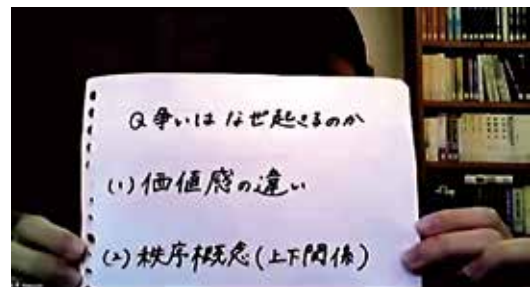 Q 争いはなぜ起きるのか
(1) 価値感の違い
(2) 秩序概念(上下関係)